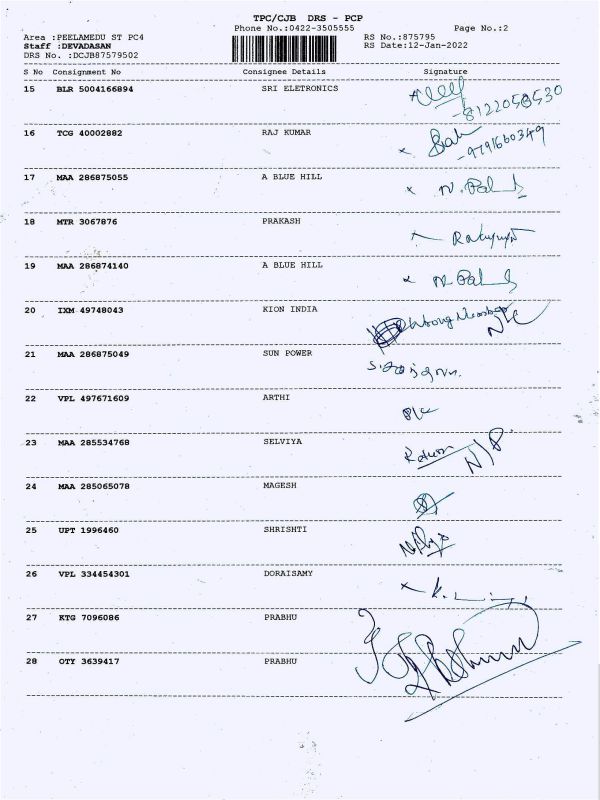 TPC/CJB DRS - PCP
Phone No.:0422-3505555 Page No.:2
Area :PEELAMEDU ST PC4 RS No.:875795
Staff :DEVADASAN RS Date:12-Jan-2022
DRS No. :DCJB87579502
S No Consignment No Consignee Details Signature
15 BLR 5004166894 SRI ELETRONICS
16 TCG 40002882 RAJ KUMAR
-9791660349
17 MAA 286875055 A BLUE HILL
18 MTR 3067876 PRAKASH
19 MAA 286874140 A BLUE HILL
20 IXM 49748043 KION INDIA
21 MAA 286875049 SUN POWER
22 VPL 497671609 ARTHI
23 MAA 285534768 SELVIYA
Return
24 MAA 285065078 MAGESH
25 UPT 1996460 SHRISHTI
26 VPL 334454301 DORAISAMY
27 KTG 7096086 PRABHU
28 OTY 3639417 PRABHU